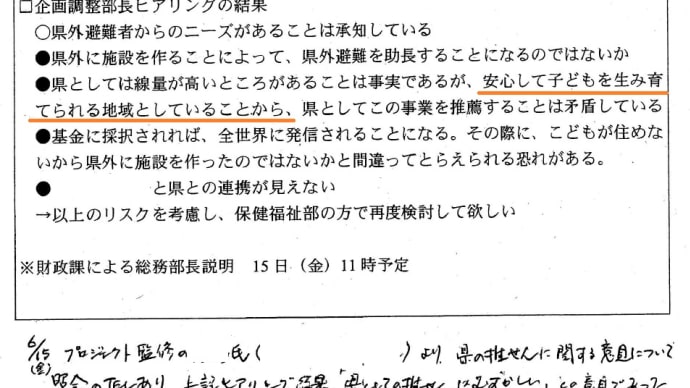 □企画調整部長ヒアリングの結果
○県外避難者からのニーズがあることは承知している
●県外に施設を作ることによって、県外避難を助長することになるのではないか
●県としては線量が高いところがあることは事実であるが、安心して子どもを生み育
てられる地域としていることから、県としてこの事業を推薦することは矛盾している
●基金に採択されれば、全世界に発信されることになる。その際に、こどもが住めな
いから県外に施設を作ったのではないかと間違ってとらえられる恐れがある。
● と県との連携が見えない
→以上のリスクを考慮し、保健福祉部の方で再度検討して欲しい
※財政課による総務部長説明 15日（金）11時予定
6/15 プロジェクト監修の 氏( )より 県の推せんに関する意見について
(金)